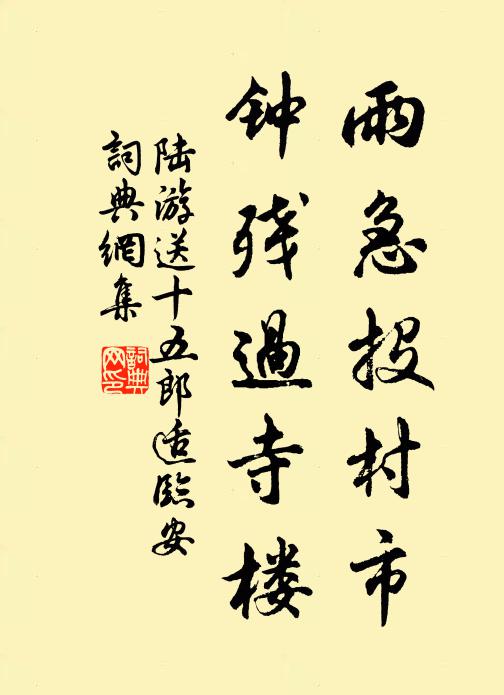 雨急投村市
钟残過寺楼
陆游送十五郎适臨安
詞典網集
詞典網印